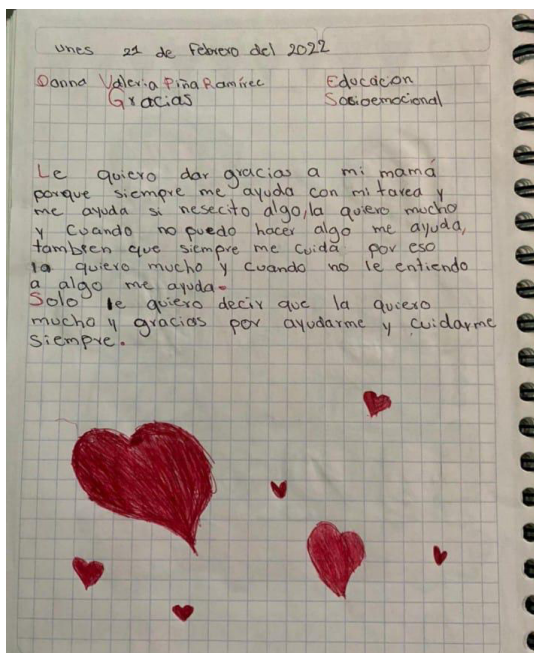 unes 21 de Febrero del 2022
Danna Valeria Piña Ramírec Educacion
Gracias Socioemocional
Le quiero dar gracias a mi mamá
porque siempre me ayuda con mi tarea y
me ayuda si nesecito algo, la quiero mucho
y cuando no puedo hacer algo me ayuda,
tambien que siempre me cuida por eso
la quiero mucho y cuando no le entiendo
a algo me ayuda.
Solo le quiero decir que la quiero
mucho y gracias por ayudarme y cuidarme
siempre.